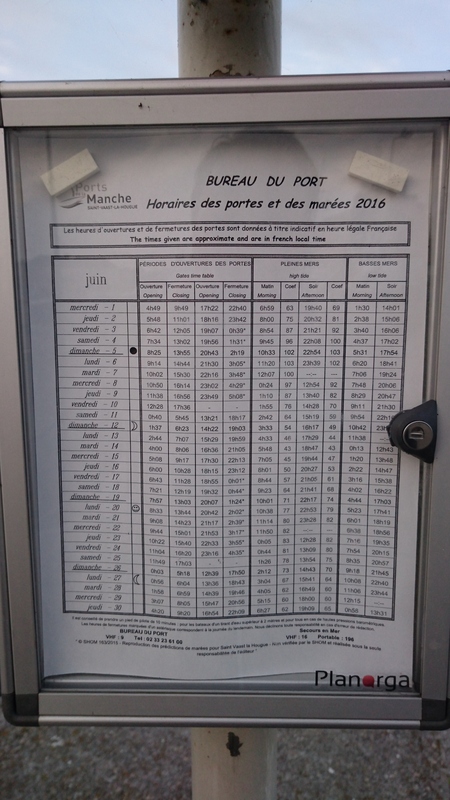 Ports
Manche
SAINT-VAAST-LA-HOUGUE
BUREAU DU PORT
Horaires des portes et des marées 2016
Les heures d'ouvertures et de fermetures des portes sont données à titre indicatif en heure légale Française
The times given are approximate and are in french local time
juin
PÉRIODES D'OUVERTURES DES PORTES PLEINES MERS BASSES MERS
Gates time table high tide low tide
Ouverture Fermeture Ouverture Fermeture Matin Coef Soir Coef Matin Soir
Opening Closing Opening Closing Morning Afternoon Morning Afternoon
mercredi - 1 4h49 9h49 17h22 22h40 6h59 63 19h40 69 1h30 14h01
jeudi - 2 5h48 11h01 18h16 23h42 8h00 75 20h32 81 2h38 15h06
vendredi - 3 6h42 12h05 19h07 0h39* 8h54 87 21h21 92 3h40 16h06
samedi - 4 7h34 13h02 19h56 1h31* 9h45 96 22h08 100 4h37 17h02
dimanche - 5 8h25 13h55 20h43 2h19 10h33 102 22h54 103 5h31 17h54
lundi - 6 9h14 14h44 21h30 3h05* 11h20 103 23h39 102 6h20 18h41
mardi - 7 10h02 15h30 22h16 3h48* 12h07 100 --:-- 7h06 19h24
mercredi - 8 10h50 16h14 23h02 4h29* 0h24 97 12h54 92 7h48 20h06
jeudi - 9 11h38 16h56 23h49 5h08* 1h10 87 13h40 82 8h29 20h47
vendredi - 10 12h28 17h36 1h55 76 14h28 70 9h11 21h30
samedi - 11 0h40 5h45 13h21 18h17 2h42 64 15h19 59 9h54
dimanche - 12 1h37 6h23 14h22 19h03 3h33 54 16h17 49 10h42
lundi - 13 2h44 7h07 15h29 19h59 4h33 46 17h29 44 11h38 --:--
mardi - 14 4h00 8h06 16h36 21h05 5h48 43 18h47 43 0h13 12h43
mercredi - 15 5h08 9h17 17h30 22h13 7h05 45 19h44 47 1h20 13h48
jeudi - 16 6h00 10h28 18h15 23h12 8h01 50 20h27 53 2h22 14h47
vendredi - 17 6h43 11h28 18h55 0h01* 8h44 57 21h05 61 3h16 15h38
samedi - 18 7h21 12h19 19h32 0h44* 9h23 64 21h41 68 4h02 16h23
dimanche - 19 7h57 13h03 20h07 1h24* 10h01 71 22h17 74 4h44 17h03
lundi - 20 8h33 13h44 20h42 2h02* 10h38 77 22h53 79 5h23 17h41
mardi - 21 9h08 14h23 21h17 2h39* 11h14 80 23h28 82 6h01 18h19
mercredi - 22 9h44 15h01 21h53 3h17* 11h50 82 --:-- 6h38 18h56
jeudi - 23 10h22 15h40 22h33 3h55* 0h05 83 12h28 82 7h16 19h35
vendredi - 24 11h04 16h20 23h16 4h35* 0h44 81 13h09 80 7h54 20h15
samedi - 25 11h49 17h03 1h26 78 13h54 75 8h35 20h57
dimanche - 26 0h03 5h18 12h39 17h50 2h12 73 14h43 70 9h18 21h45
lundi - 27 0h56 6h04 13h36 18h43 3h04 67 15h41 64 10h08 22h40
mardi - 28 1h56 6h59 14h39 19h46 4h05 62 16h49 60 11h06 23h44
mercredi - 29 3h07 8h05 15h47 20h56 5h15 60 18h00 60 12h15 ---
jeudi - 30 4h20 9h20 16h54 22h08 6h27 62 19h09 65 0h56 13h31
BUREAU DU PORT Secours en Mer
VHF : 9 Tel : 02 33 23 61 00 VHF : 16 Portable : 196
© SHOM 163/2015 - Reproduction des prédictions de marées pour Saint Vaast la Hougue - Non vérifiée par le SHOM et réalisée sous la seule
responsabilité de l'éditeur
Planorga